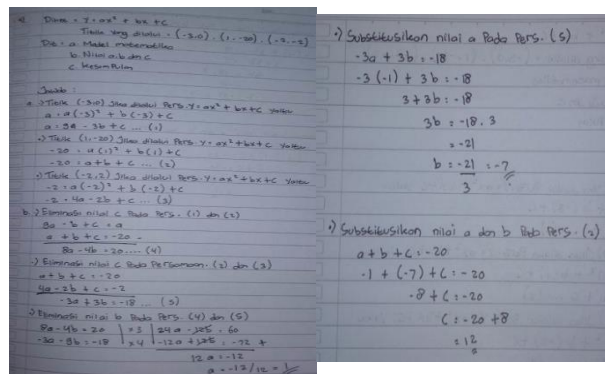 Dik : y = ax² + bx + c
Titik yang dilalui = (-3,0), (1,-20), (-2,-2)
Dit = a. Model matematika
b. Nilai a, b dan c
c. Kesimpulan
Jawab :
a. •) Titik (-3,0) Jika dilalui Pers. y = ax² + bx + c yaitu
a(-3)² + b(-3) + c
- 3b + c ... (1)
•) Titik (1,-20) Jika dilalui Pers. y = ax² + bx + c yaitu
-20 = a(1)² + b(1) + c
-20 = a + b + c ... (2)
•) Titik (-2,2) Jika dilalui Pers. y = ax² + bx + c yaitu
-2 = a(-2)² + b(-2) + c
-2 = 4a - 2b + c ... (3)
b. •) Eliminasi nilai c Pada Pers. (1) dan (2)
a + b + c = -20 -
8a - 4b = 20 ... (4)
•) Eliminasi nilai c Pada Persamaan. (2) dan (3)
a + b + c = -20
4a - 2b + c = -2
-3a + 3b = -18 ... (5)
•) Eliminasi nilai b Pada Pers. (4) dan (5)
8a - 4b = 20 | x3 | 24a - 12b = 60
= -18 | x4 | -12a + 12b = -72 +
12a = -12
a = -12/12 =
•) Substitusikan nilai a Pada Pers. (5)
-3a + 3b = -18
-3(-1) + 3b = -18
3 + 3b = -18
3b = -18 . 3
= -21
b = -21 = -7
3
•) Substitusikan nilai a dan b Pada Pers. (2)
a + b + c = -20
-1 + (-7) + c = -20
-8 + c = -20
c = -20 + 8
= 12